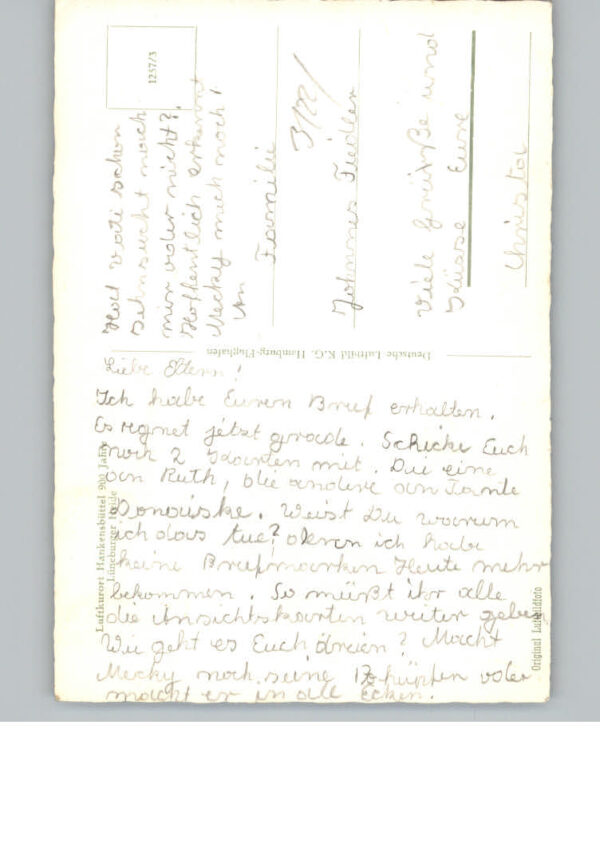 Liebe Eltern!
Ich habe Euren Brief erhalten.
Es regnet jetzt grade. Schicke Euch
noch 2 Karten mit. Die eine
an Ruth, die andere an Tante
Weist Du warum
ich das tue? denn ich habe
keine Briefmarken Heute mehr
bekommen. So müßt ihr alle
die Ansichtskarten weiter geben
Wie geht es Euch dreien? Macht
Mecky noch seine oder
macht er in alle Ecken.
Hat Vati schon
Sehnsucht nach
mir oder nicht?
Hoffentlich erkennt
Mecky mich noch!
An
Familie
Johannes Fiedler
Viele Grüße und
Küsse Eure
Christa
1257/3
Deutsche Luftbild K.G. Hamburg-Flughafen
Luftkurort Hankensbüttel 900 Jahre
Lüneburger Heide
Original Luftbildfoto